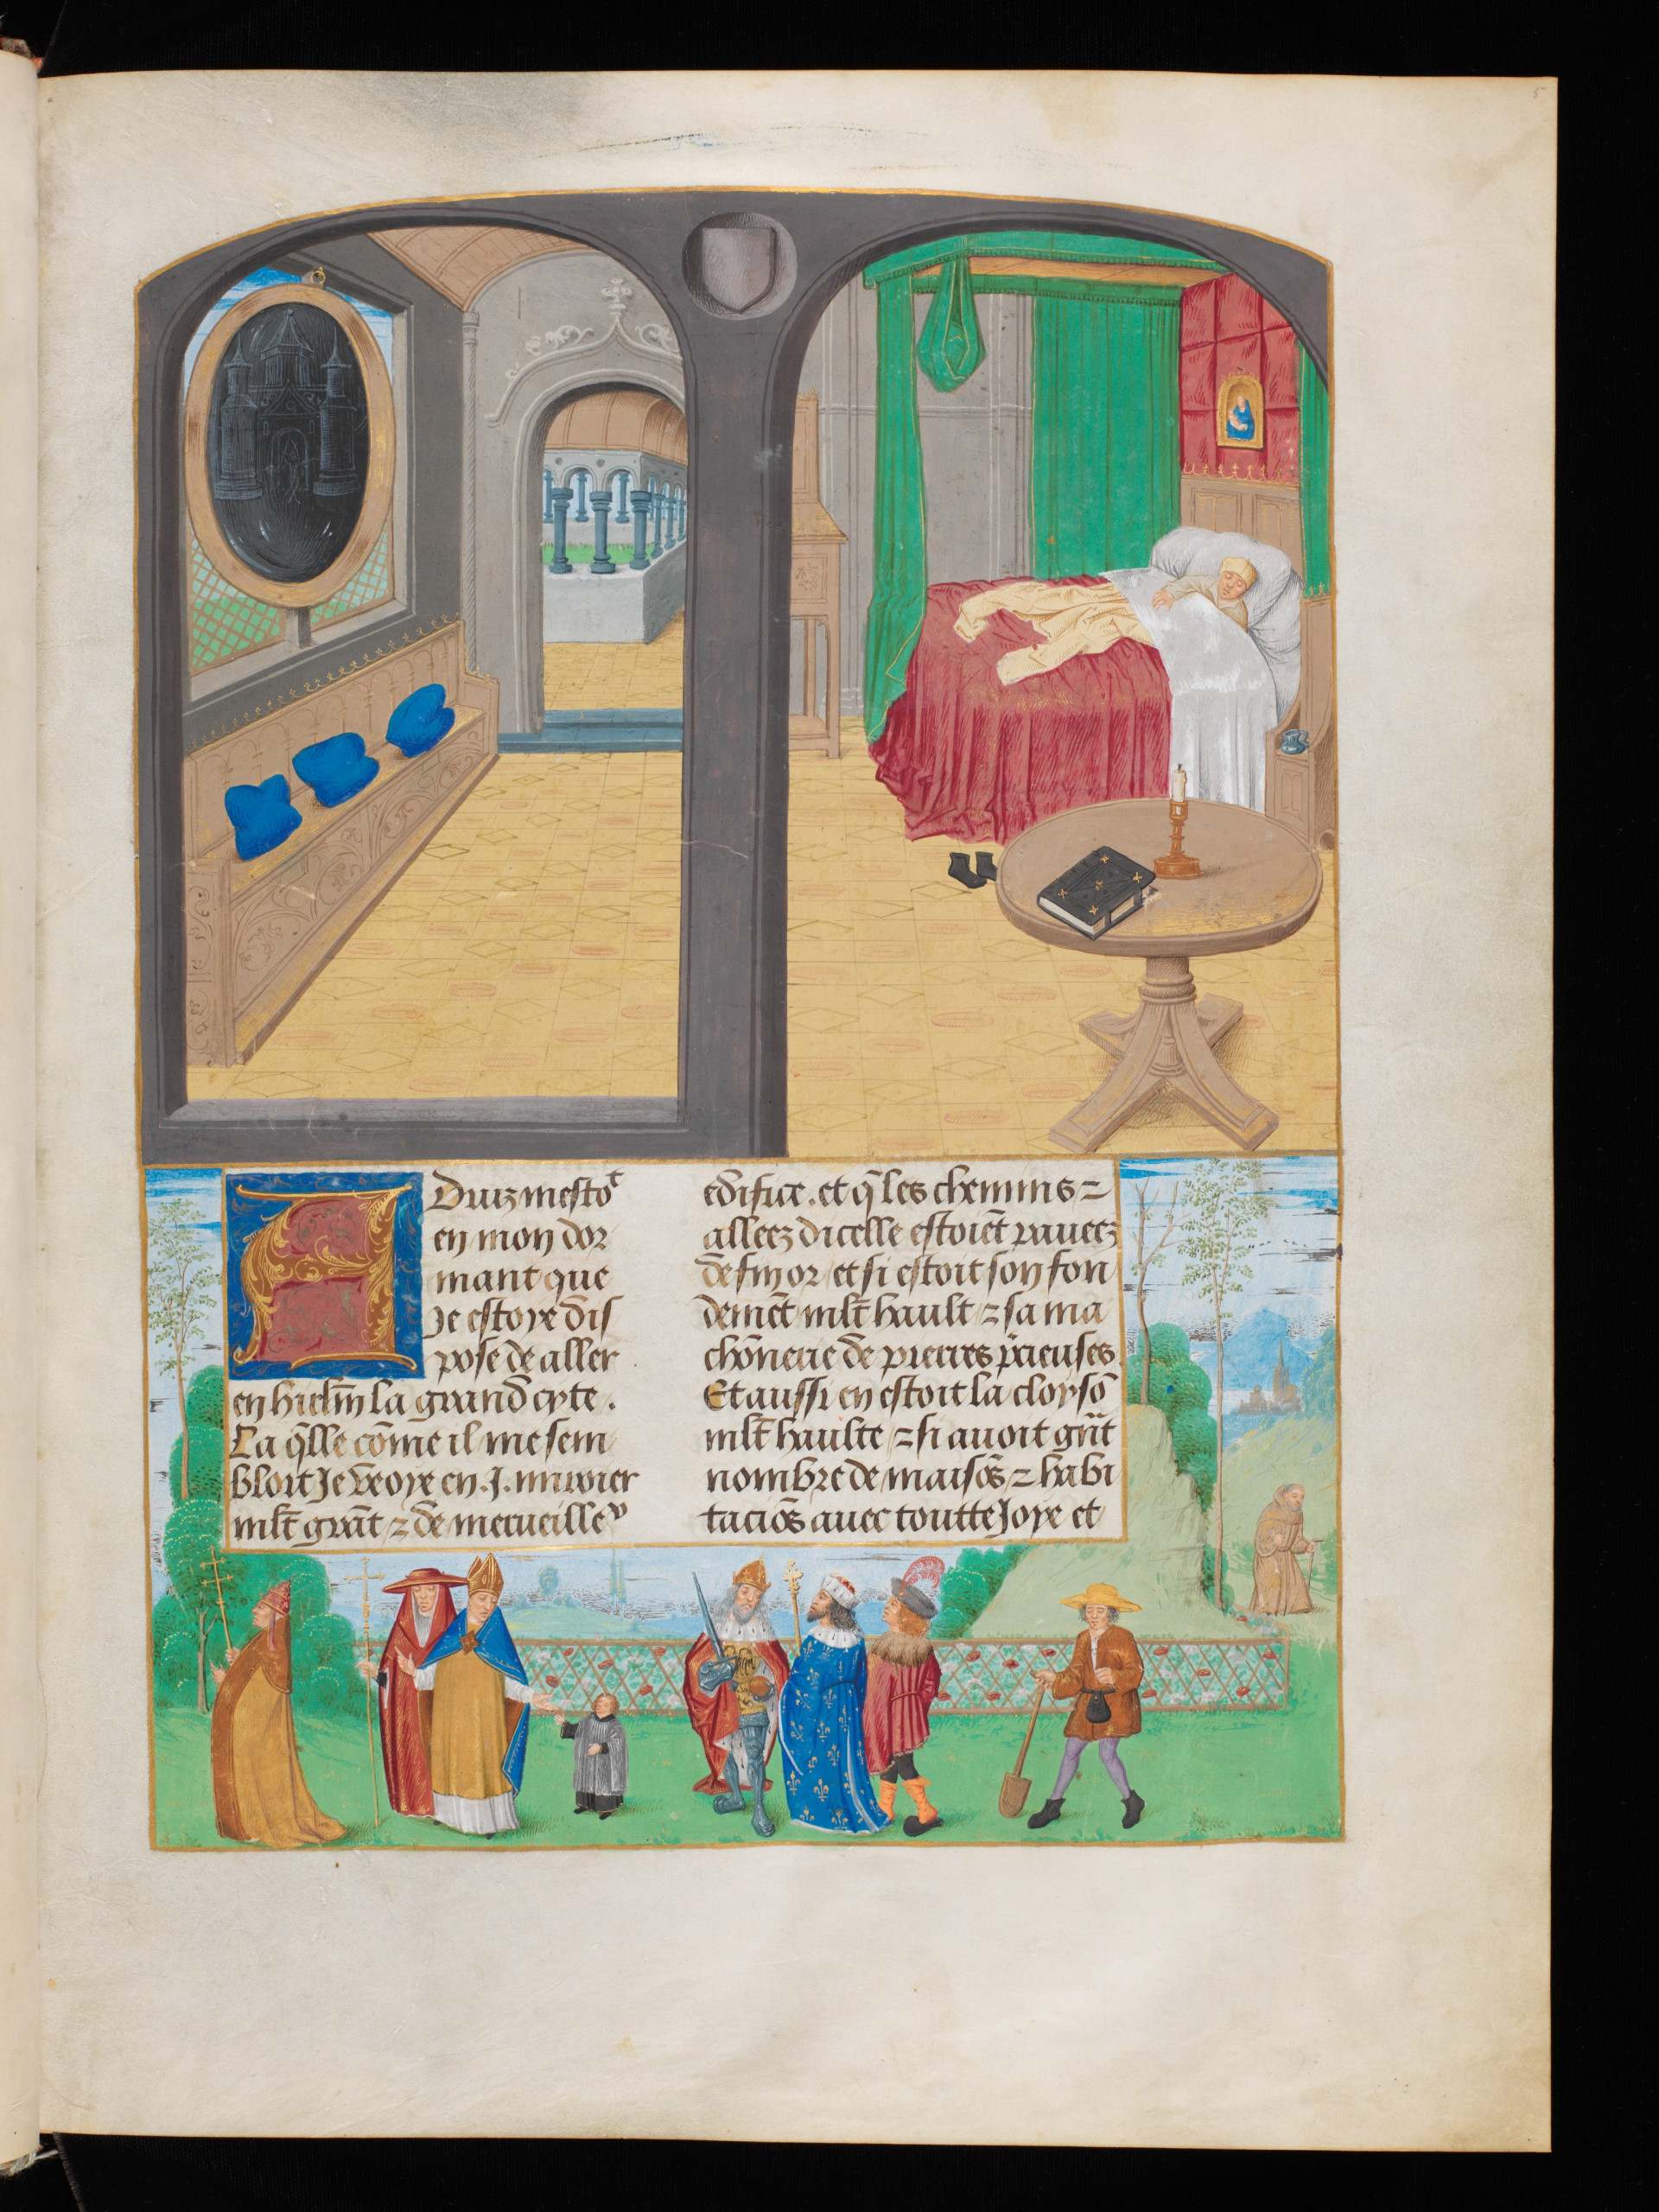 5
Aduiz mestoᵗ
en mon dor
mant que
Je estoye dis
pose de aller
en hierlm̄ la grand cyte.
La q̄lle cōme il me sem
bloit Je veoye en .j. miroier
mlt̄ grāt ⁊ de merueilleᵘ
edifice. et q̄ les chemins ⁊
alleez dicelle estoiēt paueez
de fin or / et si estoit son fon
demēt mlt̄ hault ⁊ sa ma
chōnerie de pierres p̄cieuses.
Et aussi en estoit la cloysō
mlt̄ haulte ⁊ si auoit gn̄t
nombre de maisōs ⁊ habi
taciōs auec toutte Joye et